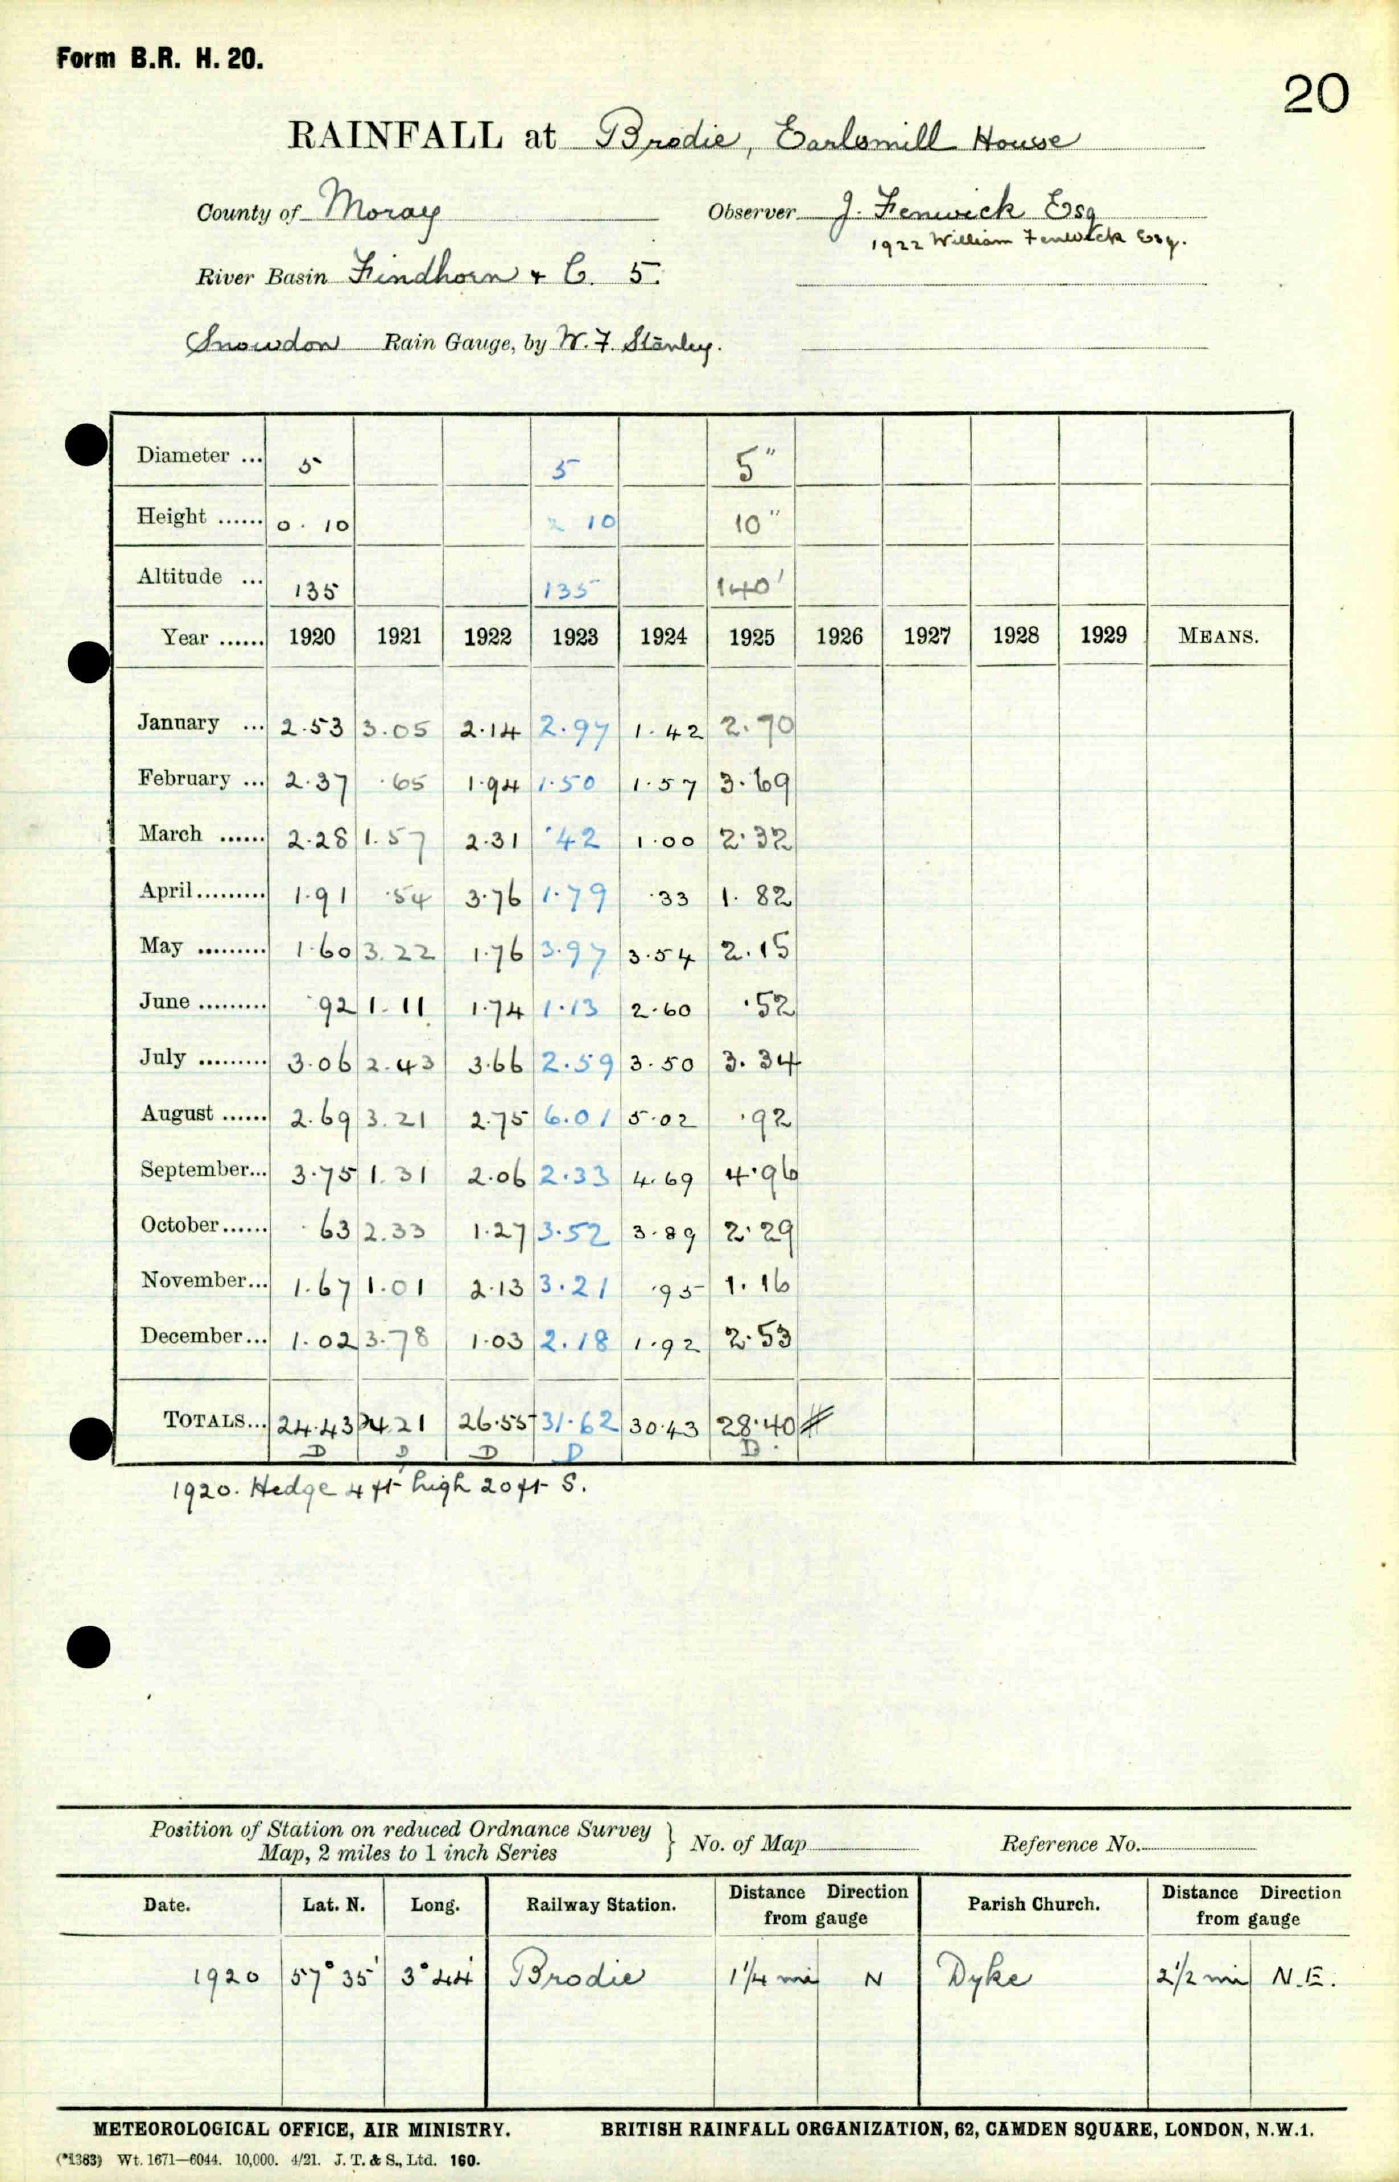 Form B.R. H. 20.
20
RAINFALL at Brodie, Earlsmill House
County of Moray Observer J. Fenwick Esq
1922 William Fenwick Esq.
River Basin Findhorn & C. 5.
Snowdon Rain Gauge, by W. F. Stanley.
Diameter ... 5 5 5"
Height ...... 0. 10 10 10"
Altitude ... 135 135 140'
Year ...... 1920 1921 1922 1923 1924 1925 1926 1927 1928 1929 MEANS.
January ... 2.53 3.05 2.14 2.97 1.42 2.70
February ... 2.37 .65 1.94 1.50 1.57 3.69
March ...... 2.28 1.57 2.31 .42 1.00 2.32
April ......... 1.91 .54 3.76 1.79 .33 1.82
May ......... 1.60 3.22 1.76 3.97 3.54 2.15
June ......... .92 1.11 1.74 1.13 2.60 .52
July ......... 3.06 2.43 3.66 2.59 3.50 3.34
August ...... 2.69 3.21 2.75 6.01 5.02 .92
September... 3.75 1.31 2.06 2.33 4.69 4.96
October...... .63 2.33 1.27 3.52 3.89 2.29
November... 1.67 1.01 2.13 3.21 .95 1.16
December... 1.02 3.78 1.03 2.18 1.92 2.53
TOTALS... 24.43 24.21 26.55 31.62 30.43 28.40
D D D D D.
1920. Hedge 4 ft high 20 ft S.
Position of Station on reduced Ordnance Survey
Map, 2 miles to 1 inch Series } No. of Map Reference No.
Date. Lat. N. Long. Railway Station. Distance Direction from gauge Parish Church. Distance Direction from gauge
1920 57° 35' 3° 44' Brodie 1 1/4 mi N Dyke 2 1/2 mi N.E.
METEOROLOGICAL OFFICE, AIR MINISTRY. BRITISH RAINFALL ORGANIZATION, 62, CAMDEN SQUARE, LONDON, N.W.1.
(*1383) Wt. 1671—6044. 10,000. 4/21. J. T. & S., Ltd. 160.